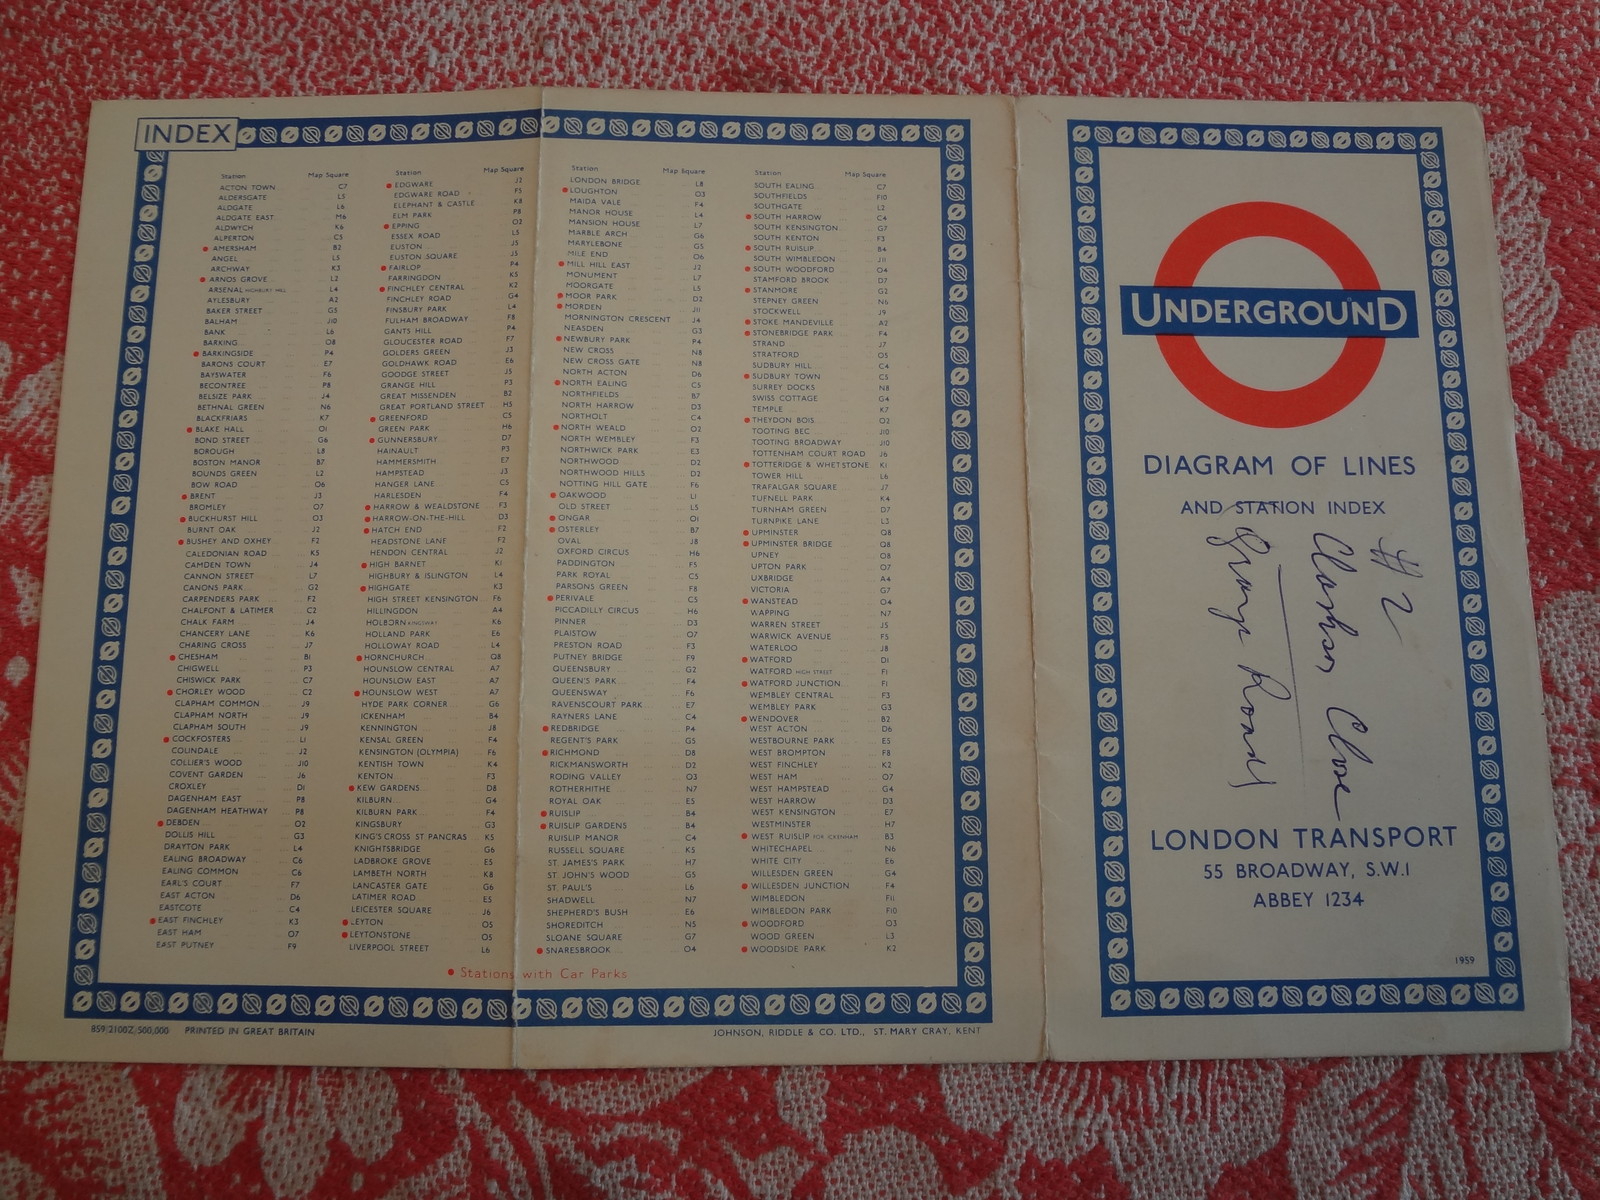 INDEX
Station Map Square
ACTON TOWN C7
ALDERSGATE L5
ALDGATE L6
ALDGATE EAST M6
ALDWYCH K6
ALPERTON C5
AMERSHAM B2
ANGEL L5
ARCHWAY K3
ARNOS GROVE L2
ARSENAL HIGHBURY HILL L4
AYLESBURY A2
BAKER STREET G5
BALHAM J10
BANK L6
BARKING O8
BARKINGSIDE P4
BARONS COURT E7
BAYSWATER F6
BECONTREE P8
BELSIZE PARK J4
BETHNAL GREEN N6
BLACKFRIARS K7
BLAKE HALL O1
BOND STREET G6
BOROUGH L8
BOSTON MANOR B7
BOUNDS GREEN L2
BOW ROAD O6
BRENT J3
BROMLEY O7
BUCKHURST HILL O3
BURNT OAK J2
BUSHEY AND OXHEY F2
CALEDONIAN ROAD K5
CAMDEN TOWN J4
CANNON STREET L7
CANONS PARK G2
CARPENDERS PARK F2
CHALFONT & LATIMER C2
CHALK FARM J4
CHANCERY LANE K6
CHARING CROSS J7
CHESHAM B1
CHIGWELL P3
CHISWICK PARK C7
CHORLEY WOOD C2
CLAPHAM COMMON J9
CLAPHAM NORTH J9
CLAPHAM SOUTH J9
COCKFOSTERS L1
COLINDALE J2
COLLIER'S WOOD J10
COVENT GARDEN J6
CROXLEY D1
DAGENHAM EAST P8
DAGENHAM HEATHWAY P8
DEBDEN O2
DOLLIS HILL G3
DRAYTON PARK L4
EALING BROADWAY C6
EALING COMMON C6
EARL'S COURT F7
EAST ACTON D6
EASTCOTE C4
EAST FINCHLEY K3
EAST HAM O7
EAST PUTNEY F9
Station Map Square
EDGWARE J2
EDGWARE ROAD F5
ELEPHANT & CASTLE K8
ELM PARK P8
EPPING O2
ESSEX ROAD L5
EUSTON J5
EUSTON SQUARE J5
FAIRLOP P4
FARRINGDON K5
FINCHLEY CENTRAL K2
FINCHLEY ROAD G4
FINSBURY PARK L4
FULHAM BROADWAY F8
GANTS HILL P4
GLOUCESTER ROAD F7
GOLDERS GREEN J3
GOLDHAWK ROAD E6
GOODGE STREET J5
GRANGE HILL P3
GREAT MISSENDEN B2
GREAT PORTLAND STREET H5
GREENFORD C5
GREEN PARK H6
GUNNERSBURY D7
HAINAULT P3
HAMMERSMITH E7
HAMPSTEAD J3
HANGER LANE C5
HARLESDEN F4
HARROW & WEALDSTONE F3
HARROW-ON-THE-HILL D3
HATCH END F2
HEADSTONE LANE F2
HENDON CENTRAL J2
HIGH BARNET K1
HIGHBURY & ISLINGTON L4
HIGHGATE K3
HIGH STREET KENSINGTON F6
HILLINGDON A4
HOLBORN KINGSWAY K6
HOLLAND PARK E6
HOLLOWAY ROAD L4
HORNCHURCH Q8
HOUNSLOW CENTRAL A7
HOUNSLOW EAST A7
HOUNSLOW WEST A7
HYDE PARK CORNER G6
ICKENHAM B4
KENNINGTON J8
KENSAL GREEN F4
KENSINGTON (OLYMPIA) F6
KENTISH TOWN K4
KENTON F3
KEW GARDENS D8
KILBURN G4
KILBURN PARK F4
KINGSBURY G3
KING'S CROSS ST PANCRAS K5
KNIGHTSBRIDGE G6
LADBROKE GROVE E5
LAMBETH NORTH K8
LANCASTER GATE G6
LATIMER ROAD E5
LEICESTER SQUARE J6
LEYTON O5
LEYTONSTONE O5
LIVERPOOL STREET L6
Station Map Square
LONDON BRIDGE L8
LOUGHTON O3
MAIDA VALE F4
MANOR HOUSE L4
MANSION HOUSE L7
MARBLE ARCH G6
MARYLEBONE G5
MILE END O6
MILL HILL EAST J2
MONUMENT L7
MOORGATE L5
MOOR PARK D2
MORDEN J11
MORNINGTON CRESCENT J4
NEASDEN G3
NEWBURY PARK P4
NEW CROSS N8
NEW CROSS GATE N8
NORTH ACTON D6
NORTH EALING C5
NORTHFIELDS B7
NORTH HARROW D3
NORTHOLT C4
NORTH WEALD O2
NORTH WEMBLEY F3
NORTHWICK PARK E3
NORTHWOOD D2
NORTHWOOD HILLS D2
NOTTING HILL GATE F6
OAKWOOD L1
OLD STREET L5
ONGAR O1
OSTERLEY B7
OVAL J8
OXFORD CIRCUS H6
PADDINGTON F5
PARK ROYAL C5
PARSONS GREEN F8
PERIVALE C5
PICCADILLY CIRCUS H6
PINNER D3
PLAISTOW O7
PRESTON ROAD F3
PUTNEY BRIDGE F9
QUEENSBURY G2
QUEEN'S PARK F4
QUEENSWAY F6
RAVENSCOURT PARK E7
RAYNERS LANE C4
REDBRIDGE P4
REGENT'S PARK G5
RICHMOND D8
RICKMANSWORTH D2
RODING VALLEY O3
ROTHERHITHE N7
ROYAL OAK E5
RUISLIP B4
RUISLIP GARDENS B4
RUISLIP MANOR C4
RUSSELL SQUARE K5
ST. JAMES'S PARK H7
ST JOHN'S WOOD G5
ST. PAUL'S L6
SHADWELL N7
SHEPHERD'S BUSH E6
SHOREDITCH N5
SLOANE SQUARE G7
SNARESBROOK O4
Station Map Square
SOUTH EALING C7
SOUTHFIELDS F10
SOUTHGATE L2
SOUTH HARROW C4
SOUTH KENSINGTON G7
SOUTH KENTON F3
SOUTH RUISLIP B4
SOUTH WIMBLEDON J11
SOUTH WOODFORD O4
STAMFORD BROOK D7
STANMORE G2
STEPNEY GREEN N6
STOCKWELL J9
STOKE MANDEVILLE A2
STONEBRIDGE PARK F4
STRAND J7
STRATFORD O5
SUDBURY HILL C4
SUDBURY TOWN C5
SURREY DOCKS N8
SWISS COTTAGE G4
TEMPLE K7
THEYDON BOIS O2
TOOTING BEC J10
TOOTING BROADWAY J10
TOTTENHAM COURT ROAD J6
TOTTERIDGE & WHETSTONE K1
TOWER HILL L6
TRAFALGAR SQUARE J7
TUFNELL PARK K4
TURNHAM GREEN D7
TURNPIKE LANE L3
UPMINSTER Q8
UPMINSTER BRIDGE Q8
UPNEY O8
UPTON PARK O7
UXBRIDGE A4
VICTORIA G7
WANSTEAD O4
WAPPING N7
WARREN STREET J5
WARWICK AVENUE F5
WATERLOO J8
WATFORD D1
WATFORD HIGH STREET F1
WATFORD JUNCTION F1
WEMBLEY CENTRAL F3
WEMBLEY PARK G3
WENDOVER B2
WEST ACTON D6
WESTBOURNE PARK E5
WEST BROMPTON F8
WEST FINCHLEY K2
WEST HAM O7
WEST HAMPSTEAD G4
WEST HARROW D3
WEST KENSINGTON E7
WESTMINSTER H7
WEST RUISLIP FOR ICKENHAM B3
WHITECHAPEL N6
WHITE CITY E6
WILLESDEN GREEN G4
WILLESDEN JUNCTION F4
WIMBLEDON F11
WIMBLEDON PARK F10
WOODFORD O3
WOOD GREEN L3
WOODSIDE PARK K2
Stations with Car Parks
859/2100Z/500,000 PRINTED IN GREAT BRITAIN
JOHNSON, RIDDLE & CO. LTD., ST. MARY CRAY, KENT
UNDERGROUND
DIAGRAM OF LINES
AND STATION INDEX
#2
Close
Road
LONDON TRANSPORT
55 BROADWAY, S.W.1
ABBEY 1234
1959